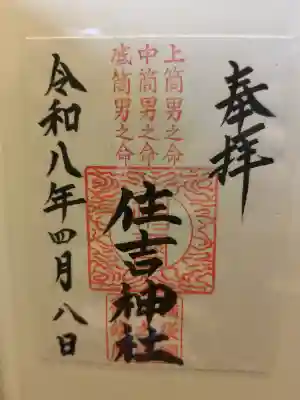 奉拝
上筒男之命
中筒男之命
底筒男之命
住吉神社
令和八年四月八日